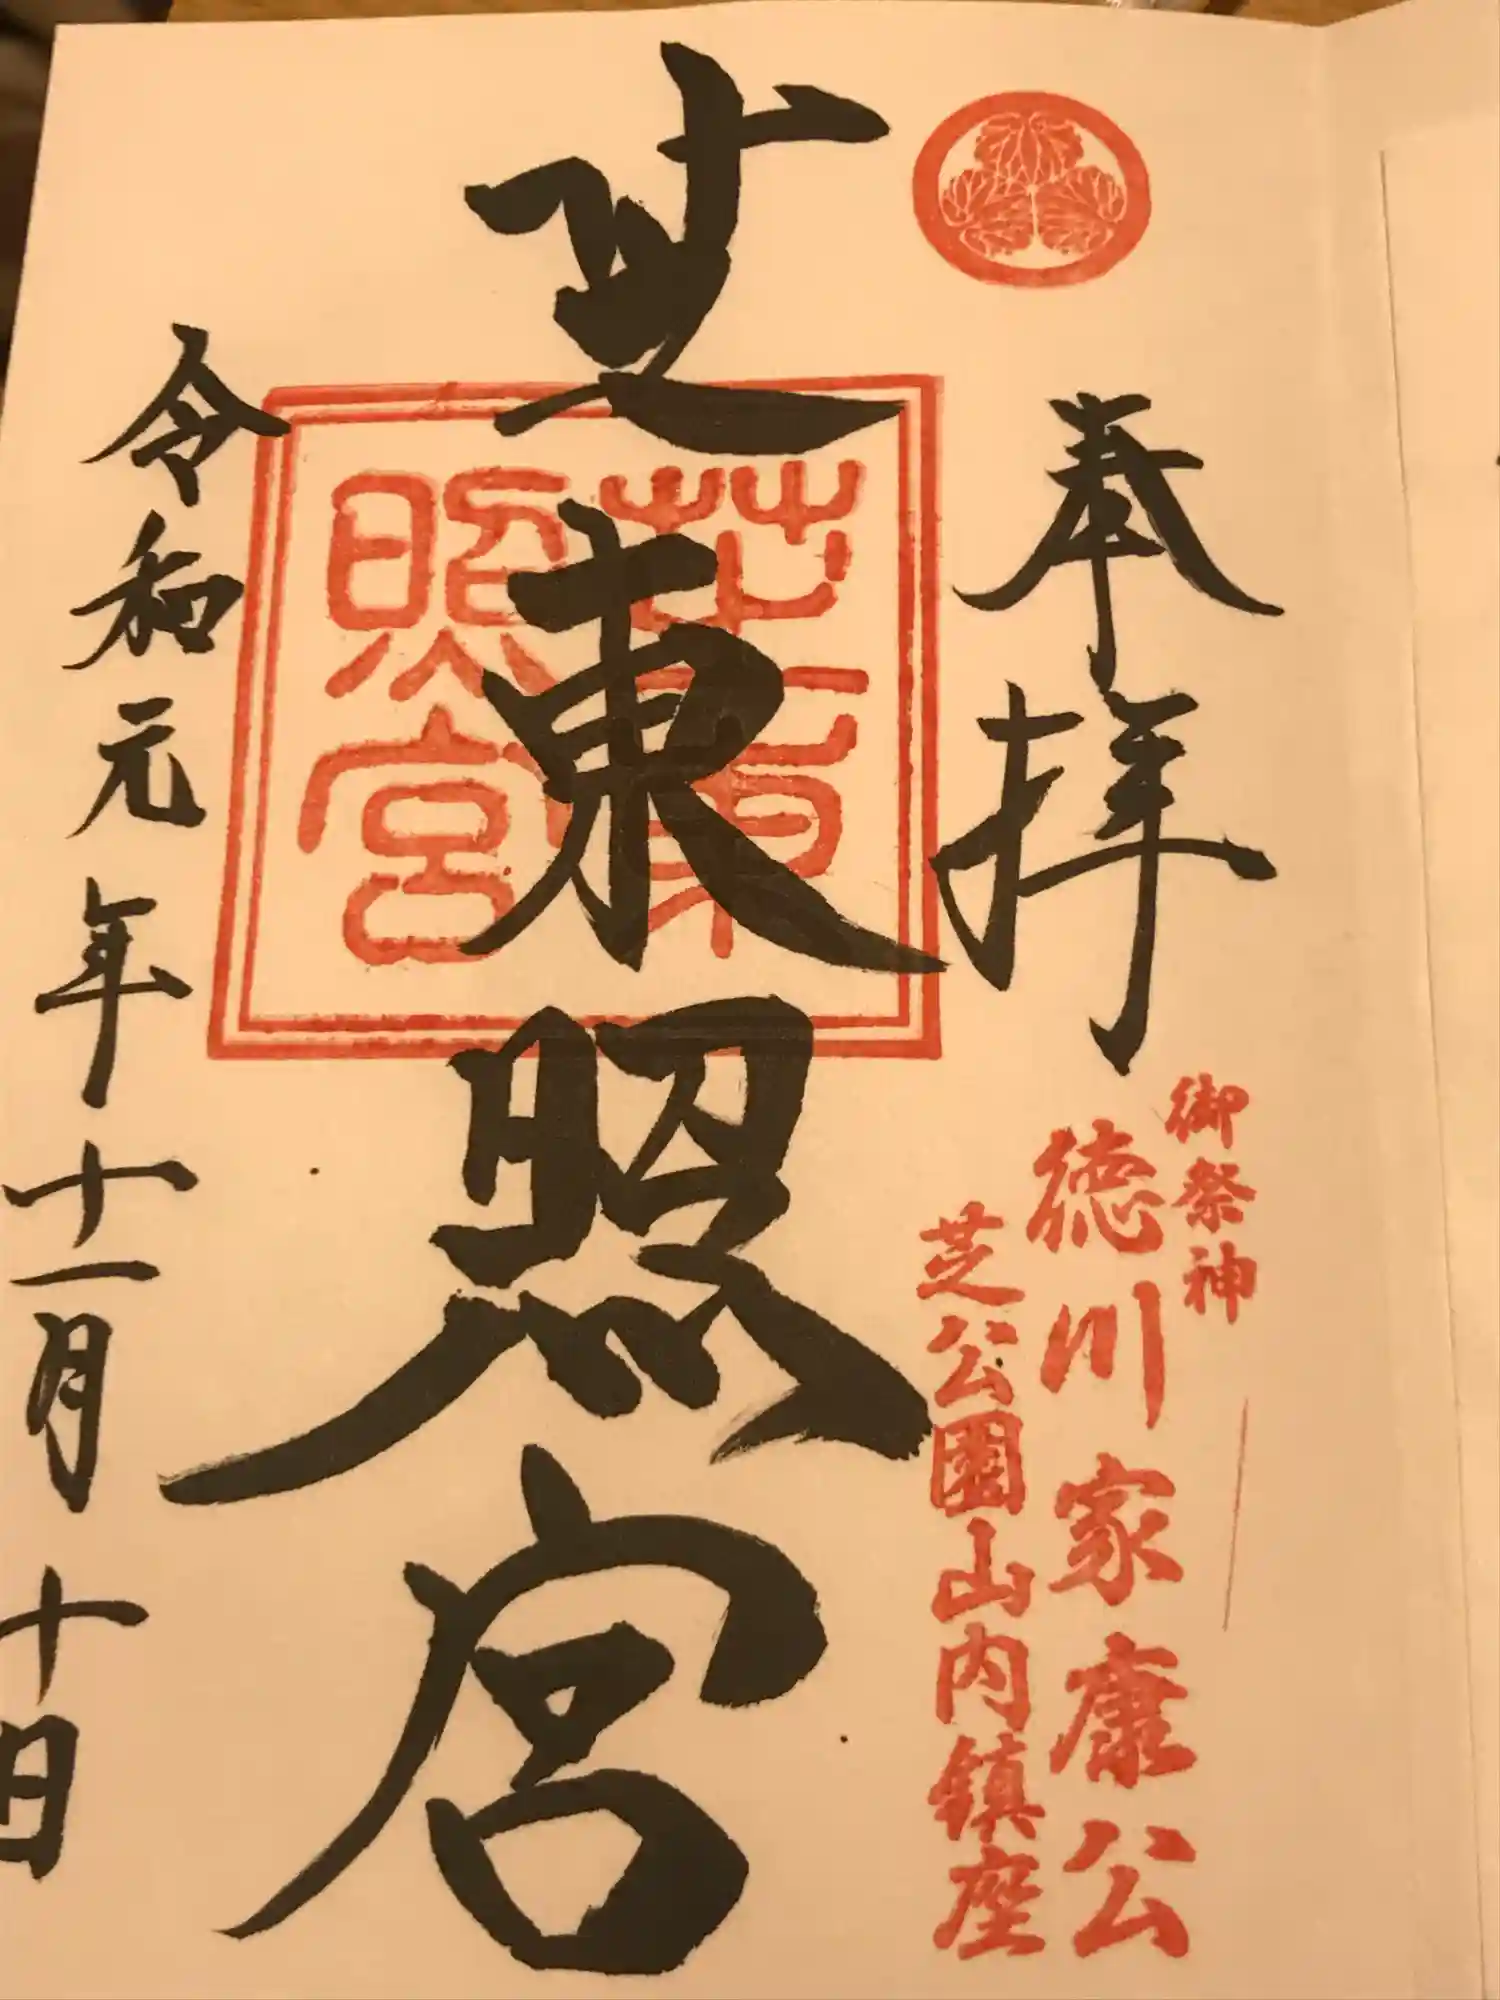 奉拝
御祭神
徳川家康公
芝公園山内鎮座
芝東照宮
芝東
照宮
令和元年十一月十日